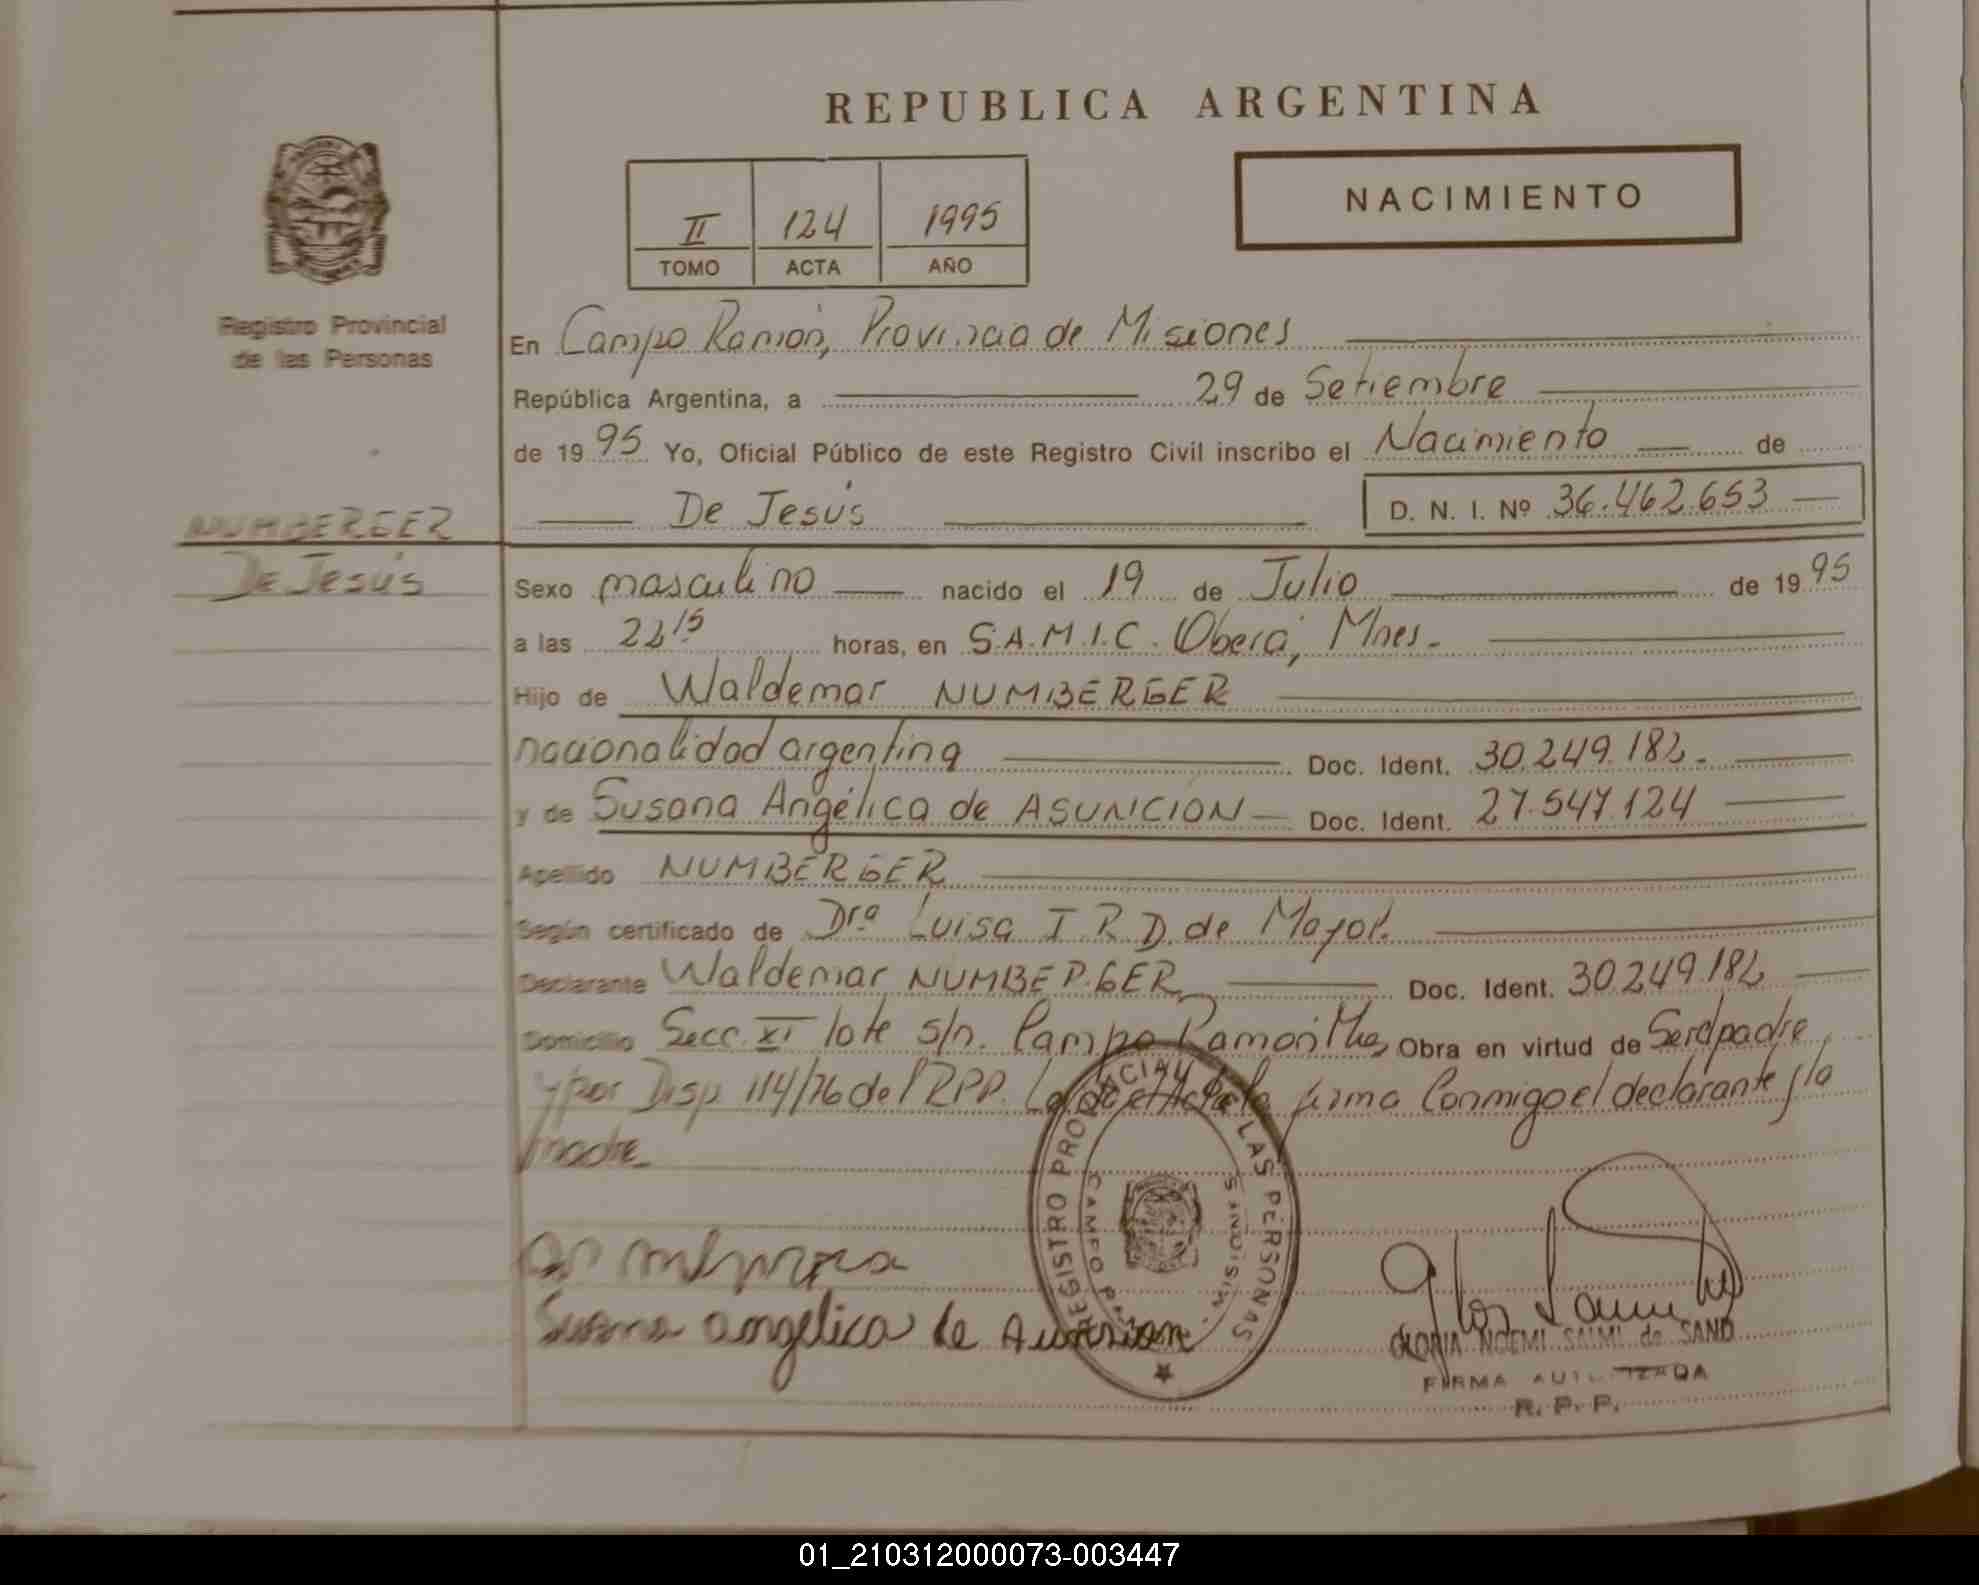 REPUBLICA ARGENTINA
NACIMIENTO
II 124 1995
TOMO ACTA AÑO
Registro Provincial
de las Personas
En Campo Ramón, Provincia de Misiones
República Argentina, a 29 de Setiembre
de 19 95 Yo, Oficial Público de este Registro Civil inscribo el Nacimiento de
De Jesús D. N. I. Nº 36.462.653
NUMBERGER
De Jesús
Sexo masculino nacido el 19 de Julio de 19 95
a las 22 15 horas, en S.A.M.I.C. Oberá, Mnes.
Hijo de Waldemar NUMBERGER
nacionalidad argentina Doc. Ident. 30.249.182.
y de Susana Angélica de ASUNCION Doc. Ident. 27.547.124
Apellido NUMBERGER
Según certificado de Dra Luisa I. R. D. de Mayol.
Declarante Waldemar NUMBERGER Doc. Ident. 30.249.182
Domicilio Secc. XI lote s/n. Campo Ramón Obra en virtud de Ser padre
y por Disp. 114/76 del RPP. firma Conmigo el declarante y la
madre
REGISTRO PROVINCIAL DE LAS PERSONAS
CAMPO MISIONES
Susana angelica de
GLORIA NOEMI SAIMI de SAND
FIRMA AUTORIZADA
R. P. P.
01_210312000073-003447